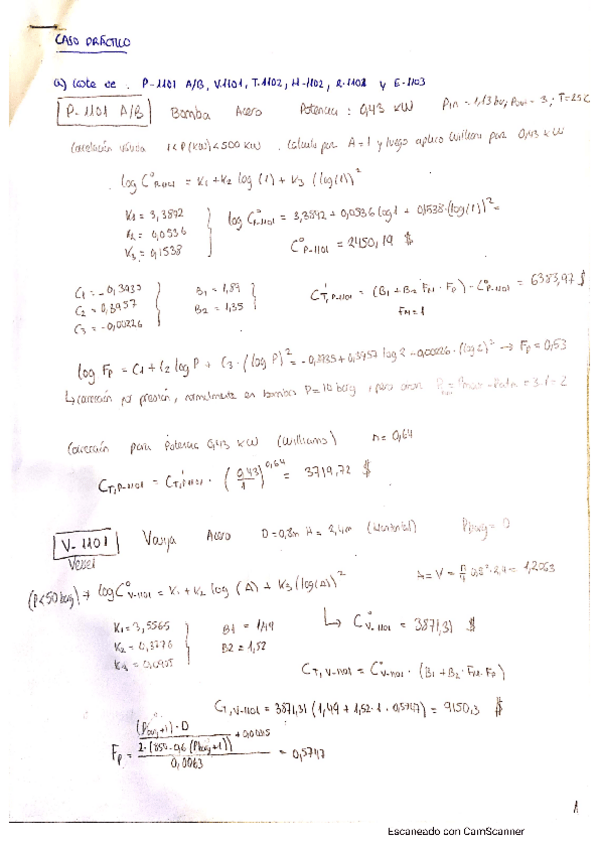 CASO PRÁCTICO
a) Coste de: P-1101 A/B, V-1101, T-1102, H-1102, R-1102 y E-1103
P-1101 A/B Bomba Acero Potencia: 0,43 kW Pin = 1,13 bar, Pout = 3; T=25C
Correlación válida 1<P(kW)<500 kW. Calculo por A=1 y luego aplico Williams por 0,43 kW
log C°P-1101 = K1+K2 log (1) + K3 (log(1))²
K1 = 3,3892
K2 = 0,0536
K3 = 0,1538
log C°P-1101 = 3,3892 + 0,0536 log1 + 0,1538·(log(1))² =
C°P-1101 = 2450,19 $
C1 = -0,3935
C2 = 0,3957
C3 = -0,00226
B1 = 1,89
B2 = 1,35
C'T,P-1101 = (B1+B2·FM·FP)·C°P-1101 = 6383,97 $
FM=1
log FP = C1+C2 log P + C3·(log P)² = -0,3935+0,3957 log 2 -0,00226·(log2)² → FP = 0,53
↳ corrección por presión, normalmente en bombas P=10 barg, pero
= 3-1 = 2
Corrección para Potencia 0,43 kW (Williams) n = 0,64
CT,P-1101 = C'T,P-1101 · (0,43/1)^0,64 = 3719,72 $
V-1101 Vasija Acero D=0,8m H = 2,4m Pbarg = 0
Vessel
A = V = π/4 0,8²·2,4 = 1,2063
(P<50 barg) → log C°V-1101 = K1 + K2 log (A) + K3 (log(A))²
K1 = 3,5565
K2 = 0,3776
K3 = 0,0905
B1 = 1,49
B2 = 1,52
↳ C°V-1101 = 3871,31 $
CT,V-1101 = C°V-1101 · (B1+B2·FM·FP)
CT,V-1101 = 3871,31 (1,49 + 1,52·1·0,5747) = 9150,3 $
(Pbarg+1)·D
2·(850-0,6(Pbarg+1))
+0,00315
FP = = 0,5747
0,0063
1
Escaneado con CamScanner